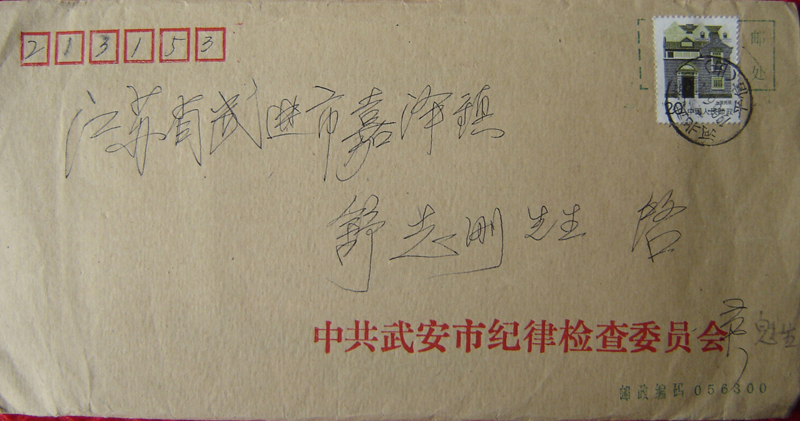 213153
江苏省武进市嘉泽镇
舒志刚先生 启
中共武安市纪律检查委员会
邮政编码 056300
20分 中国人民邮政
邮
处